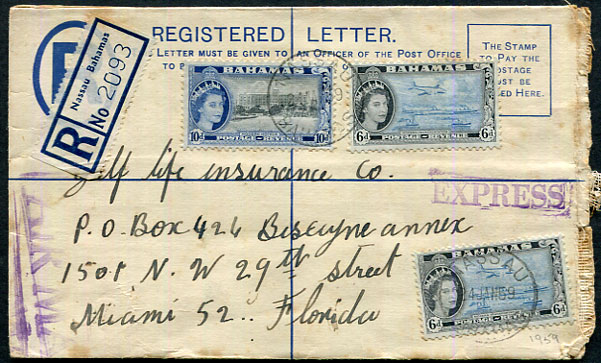 REGISTERED LETTER.
LETTER MUST BE GIVEN TO AN OFFICER OF THE POST OFFICE
TO
THE STAMP
TO PAY THE
POSTAGE
MUST BE
HERE.
R
Nassau Bahamas
No 2093
BAHAMAS
10d
10d
POSTAGE - REVENUE
BAHAMAS
6d
6d
POSTAGE - REVENUE
Gulf life insurance Co.
P.O. Box 424 Biscuyne annex
150.1 N. W 29th street
Miami 52.. Florida
EXPRESS
BAHAMAS
NASSAU
6d
6d
POSTAGE - REVENUE
1959